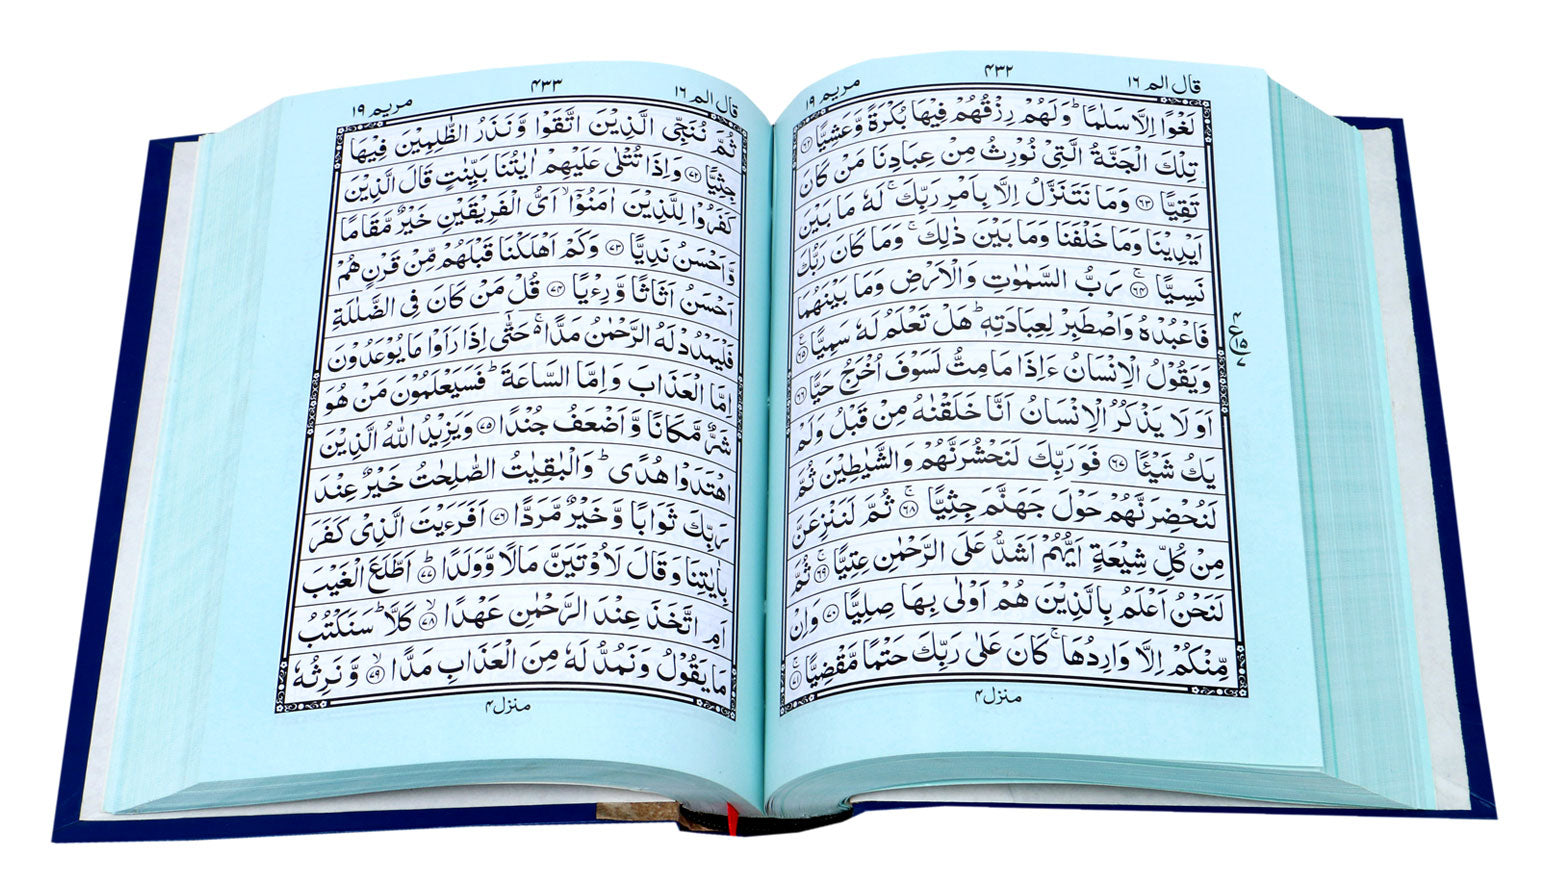 قال الم ۱۶
۴۳۲
مریم ۱۹
لَغْوًا اِلَّا سَلٰمًا ؕ وَلَهُمْ رِزْقُهُمْ فِيْهَا بُكْرَةً وَّعَشِيًّا ﴿۶۲﴾
تِلْكَ الْجَنَّةُ الَّتِيْ نُوْرِثُ مِنْ عِبَادِنَا مَنْ كَانَ
تَقِيًّا ﴿۶۳﴾ وَمَا نَتَنَزَّلُ اِلَّا بِاَمْرِ رَبِّكَ ۚ لَهٗ مَا بَيْنَ
اَيْدِيْنَا وَمَا خَلْفَنَا وَمَا بَيْنَ ذٰلِكَ ۚ وَمَا كَانَ رَبُّكَ
نَسِيًّا ﴿۶۴﴾ۚ رَبُّ السَّمٰوٰتِ وَالْاَرْضِ وَمَا بَيْنَهُمَا
فَاعْبُدْهُ وَاصْطَبِرْ لِعِبَادَتِهٖ ؕ هَلْ تَعْلَمُ لَهٗ سَمِيًّا ﴿۶۵﴾ ع
وَيَقُوْلُ الْاِنْسَانُ ءَاِذَا مَا مِتُّ لَسَوْفَ اُخْرَجُ حَيًّا ﴿۶۶﴾
اَوَلَا يَذْكُرُ الْاِنْسَانُ اَنَّا خَلَقْنٰهُ مِنْ قَبْلُ وَلَمْ
يَكُ شَيْـًٔا ﴿۶۷﴾ فَوَرَبِّكَ لَنَحْشُرَنَّهُمْ وَالشَّيٰطِيْنَ ثُمَّ
لَنُحْضِرَنَّهُمْ حَوْلَ جَهَنَّمَ جِثِيًّا ﴿۶۸﴾ۚ ثُمَّ لَنَنْزِعَنَّ
مِنْ كُلِّ شِيْعَةٍ اَيُّهُمْ اَشَدُّ عَلَى الرَّحْمٰنِ عِتِيًّا ﴿۶۹﴾ۚ ثُمَّ
لَنَحْنُ اَعْلَمُ بِالَّذِيْنَ هُمْ اَوْلٰى بِهَا صِلِيًّا ﴿۷۰﴾ وَاِنْ
مِّنْكُمْ اِلَّا وَارِدُهَا ۚ كَانَ عَلٰى رَبِّكَ حَتْمًا مَّقْضِيًّا ﴿۷۱﴾ۚ
منزل ۴
۴
ع ۱۵
۷
قال الم ۱۶
۴۳۳
مریم ۱۹
ثُمَّ نُنَجِّي الَّذِيْنَ اتَّقَوْا وَّنَذَرُ الظّٰلِمِيْنَ فِيْهَا
جِثِيًّا ﴿۷۲﴾ وَاِذَا تُتْلٰى عَلَيْهِمْ اٰيٰتُنَا بَيِّنٰتٍ قَالَ الَّذِيْنَ
كَفَرُوْا لِلَّذِيْنَ اٰمَنُوْٓا ۙ اَيُّ الْفَرِيْقَيْنِ خَيْرٌ مَّقَامًا
وَّاَحْسَنُ نَدِيًّا ﴿۷۳﴾ وَكَمْ اَهْلَكْنَا قَبْلَهُمْ مِّنْ قَرْنٍ هُمْ
اَحْسَنُ اَثَاثًا وَّرِءْيًا ﴿۷۴﴾ قُلْ مَنْ كَانَ فِي الضَّلٰلَةِ
فَلْيَمْدُدْ لَهُ الرَّحْمٰنُ مَدًّا ۚ۬ حَتّٰٓى اِذَا رَاَوْا مَا يُوْعَدُوْنَ
اِمَّا الْعَذَابَ وَاِمَّا السَّاعَةَ ؕ فَسَيَعْلَمُوْنَ مَنْ هُوَ
شَرٌّ مَّكَانًا وَّاَضْعَفُ جُنْدًا ﴿۷۵﴾ وَيَزِيْدُ اللّٰهُ الَّذِيْنَ
اهْتَدَوْا هُدًى ؕ وَالْبٰقِيٰتُ الصّٰلِحٰتُ خَيْرٌ عِنْدَ
رَبِّكَ ثَوَابًا وَّخَيْرٌ مَّرَدًّا ﴿۷۶﴾ اَفَرَءَيْتَ الَّذِيْ كَفَرَ
بِاٰيٰتِنَا وَقَالَ لَاُوْتَيَنَّ مَالًا وَّوَلَدًا ﴿۷۷﴾ؕ اَطَّلَعَ الْغَيْبَ
اَمِ اتَّخَذَ عِنْدَ الرَّحْمٰنِ عَهْدًا ﴿۷۸﴾ۙ كَلَّا ؕ سَنَكْتُبُ
مَا يَقُوْلُ وَنَمُدُّ لَهٗ مِنَ الْعَذَابِ مَدًّا ﴿۷۹﴾ۙ وَّنَرِثُهٗ
منزل ۴